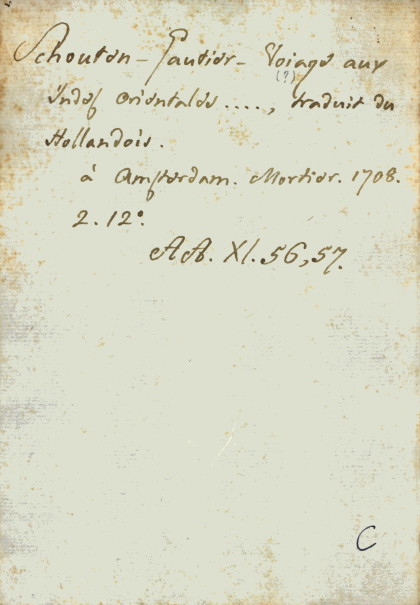 Schouten - Gautier - Voiage aux
(?)
Indes orientales ...., traduit du
Hollandois.
à Amsterdam. Mortier. 1708.
2. 12°.
AA. XI. 56, 57.
C